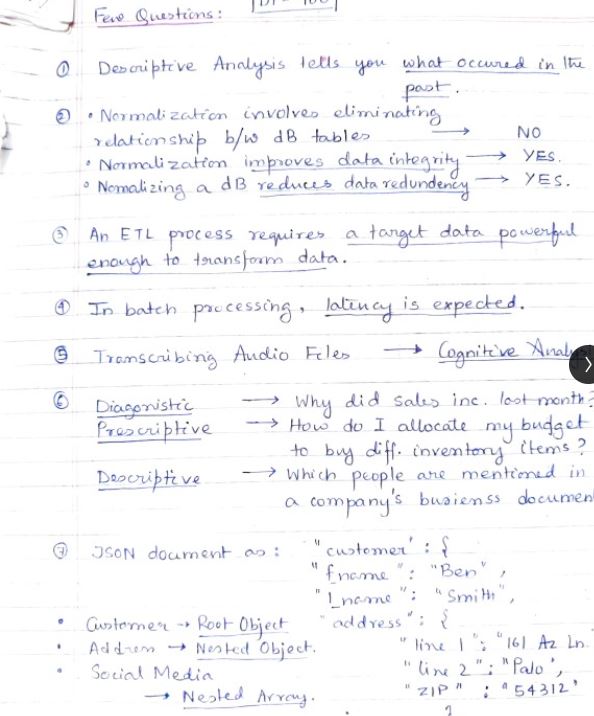 Few Questions :
① Descriptive Analysis tells you what occured in the
past.
② • Normalization involves eliminating
relationship b/w dB tables → NO
• Normalization improves data integrity → YES.
• Nomalizing a dB reduces data redundency → YES.
③ An ETL process requires a target data powerful
enough to transform data.
④ In batch processing, latency is expected.
⑤ Transcribing Audio Files → Cognitive Analy
⑥ Diagonistic → Why did sales inc. last month?
Prescriptive → How do I allocate my budget
to buy diff. inventory items?
Descriptive → Which people are mentioned in
a company's busienss documen
⑦ JSON document as : "customer' : {
"fname" : "Ben",
"l_name" : "Smith",
• Customer → Root Object "address" : {
• Address → Nested Object. "line 1" : "161 Az Ln.
• Social Media "line 2" : "Palo',
→ Nested Array. "ZIP" : "54312'